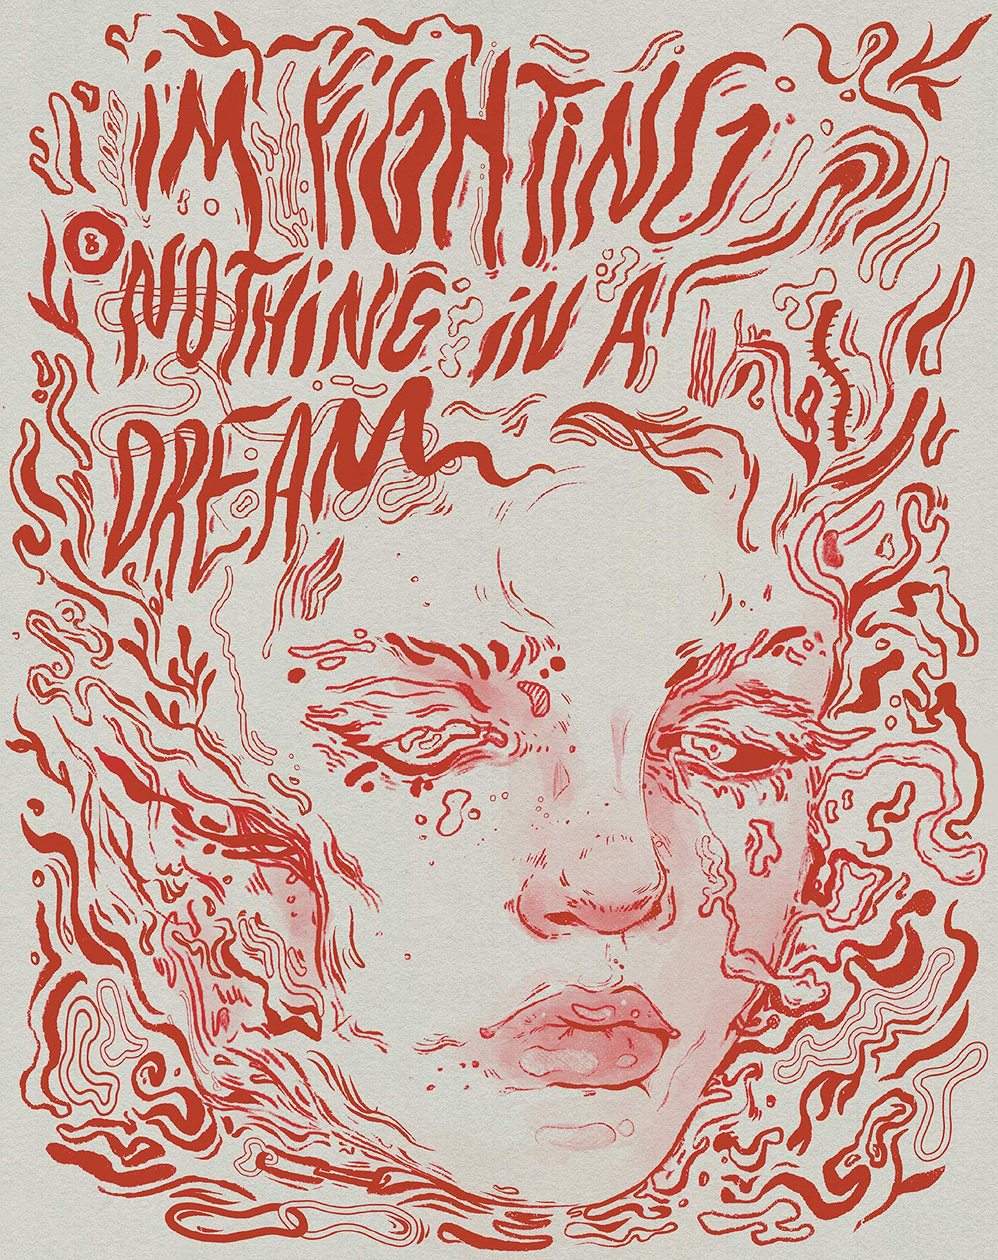 I'M FIGHTING
& NOTHING IN A
DREAM